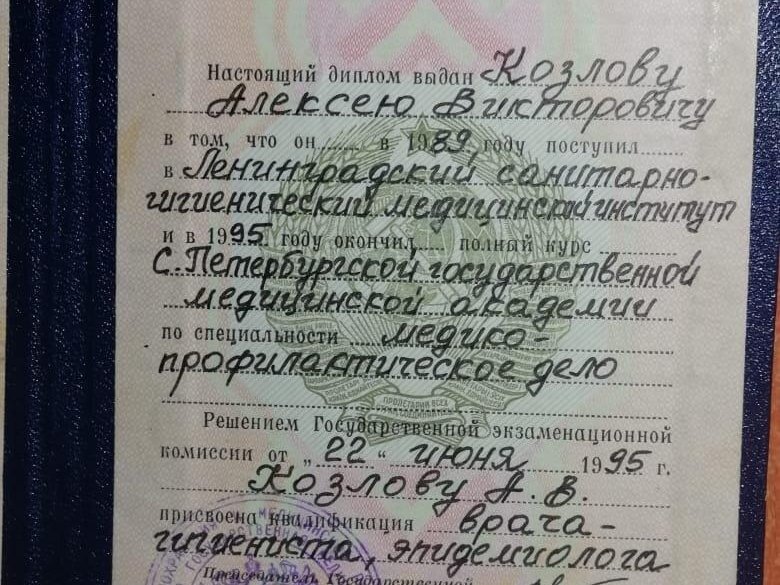 Настоящий диплом выдан Козлову
Алексею Викторовичу
в том, что он в 1989 году поступил
в Ленинградский санитарно-
гигиенический медицинский институт
и в 1995 году окончил полный курс
С.Петербургской государственной
медицинской академии
по специальности медико-
профилактическое дело
ПРОЛЕТАРИИ ВСЕХ
Решением Государственной экзаменационной
комиссии от „22“ июня 1995 г.
Козлову А.В.
присвоена квалификация врача-
гигиениста, эпидемиолога
Председатель Государственной